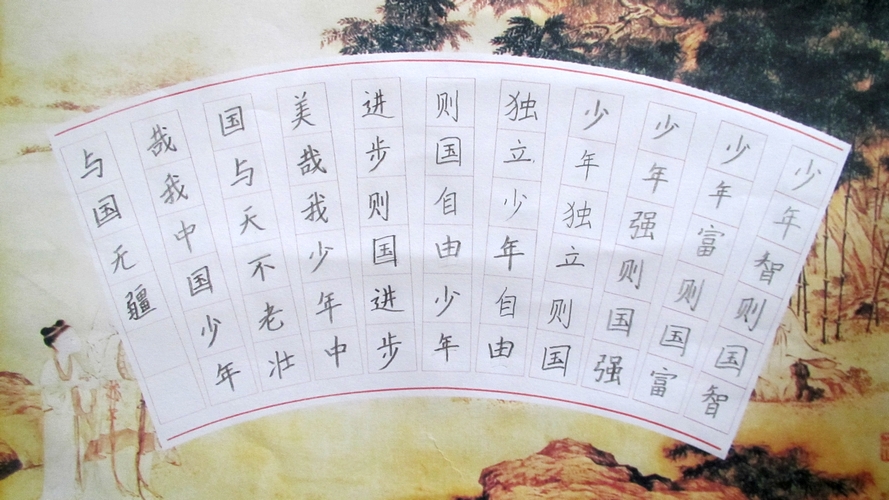 少年智则国智
少年富则国富
少年强则国强
少年独立则国
独立少年自由
则国自由少年
进步则国进步
美哉我少年中
国与天不老壮
哉我中国少年
与国无疆